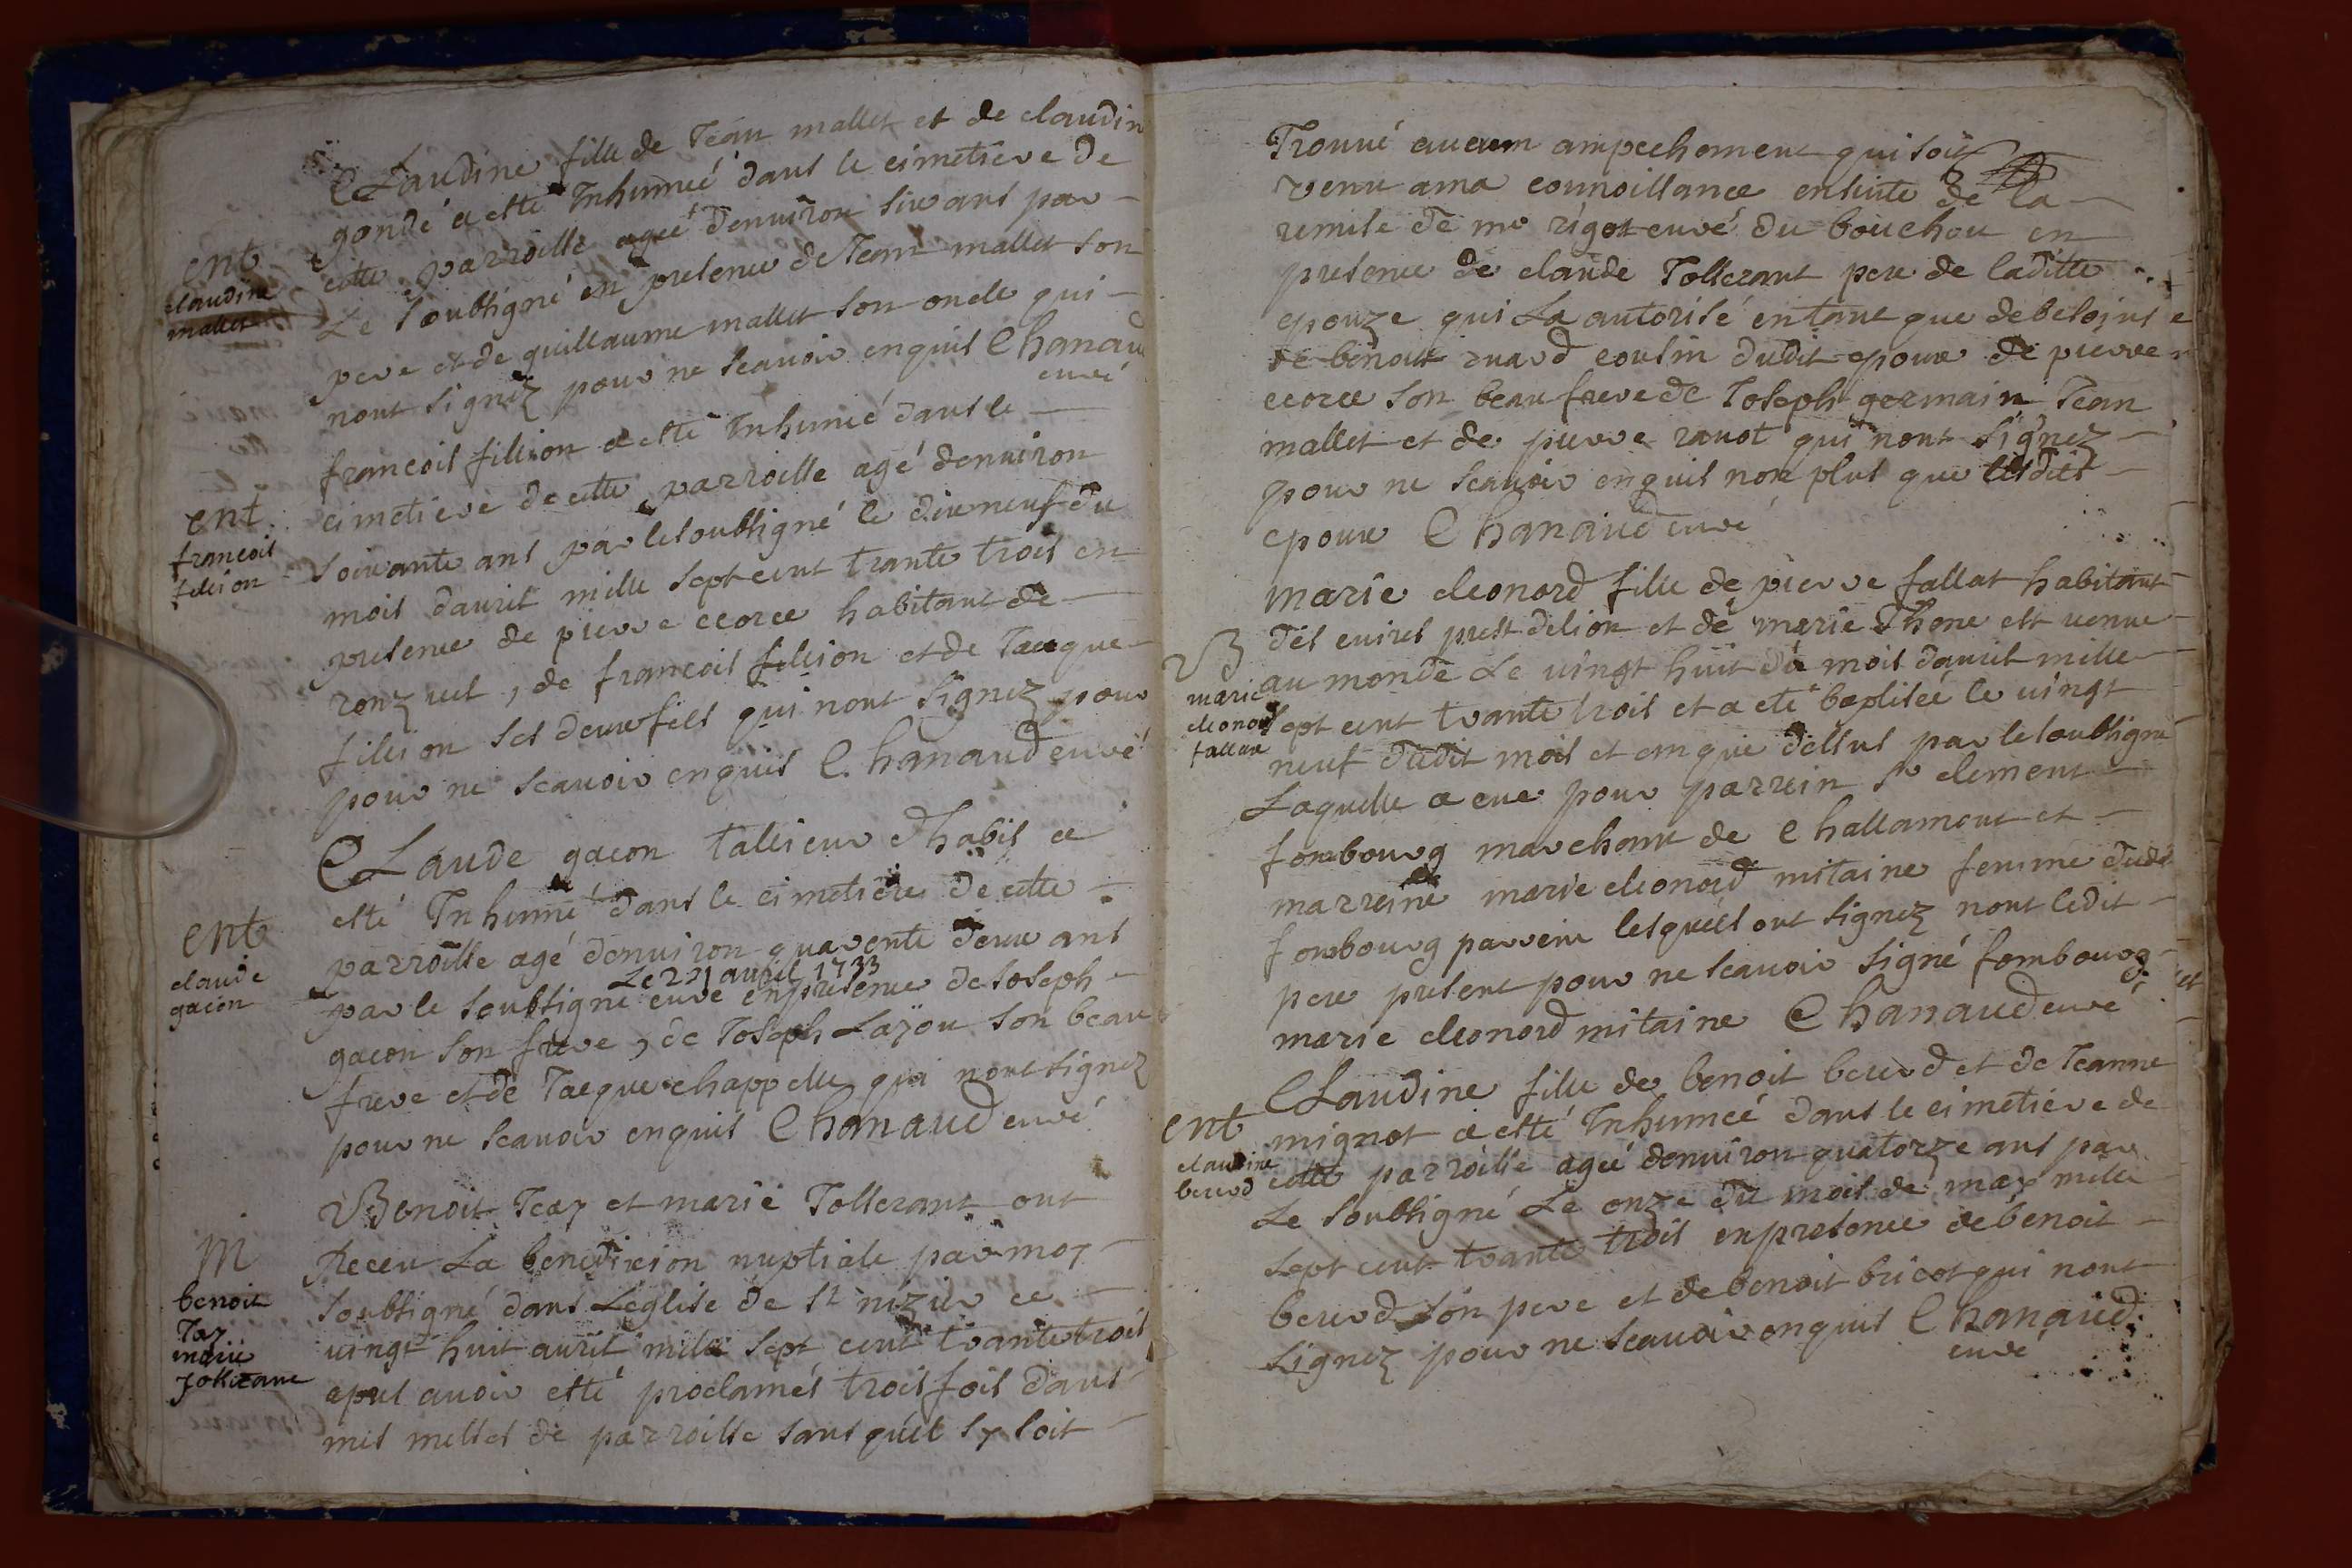 Claudine fille de Jean mallet et de claudin
gondé a esté Inhumeé dans le cimetiere de
cette parroisse ageé denuiron six ans par
ent
claudine
mallet
Le soubsigné en presence de Jean mallet son
pere et de guillaume mallet son oncle qui
nont signéz pour ne scauoir enquis Chanaud
curé
francois fillion a esté Inhumé dans le
cimetiere de cette parroisse agé denuiron
ent
francois
fillion
soixante ans par le soubsigné le dixneuf du
mois dauril mille sept cent trante trois en
presence de pierre ecorce habitant de
ronzuel, de francois fillion et de Jacque
fillion ses deux fils qui nont signez pour
pour ne scauoir enquis Chanaud curé
CLaude gacon tallieur dhabis a
esté Inhumé dans le cimetiere de cette
ent
claude
gacon
parroisse agé denuiron quarente deux ans
Le 21 auril 1733
par le soubsigné curé en presence de Joseph
gacon son frere, de Joseph Layou son beau
frere et de Jacque chappelle qui nont signez
pour ne scauoir enquis Chanaud curé
Benoit Jcay et marie Tollerant ont
m
benoit
Jay
marie
Jollerant
Receu La benediccion nuptiale par moy
soubsigné dans Leglise de st nizier ce
uingt huit auril mille sept cent trante trois
apres auoir esté proclamés trois fois dans
mes messes de parroisse sans quil sy soit
Trouué aucum ampechement qui soit
venu ama connoissance ensuite de la
remise de mr rigot curé du bouchou en
presence de claude Tollerant pere de laditte
epouze qui La autorisé entant que de besoins
de benoit ruard cousin dudit epoux de pierre
ecorce son beau frere de Joseph germain Jean
mallet et de pierre rauot qui nont signez
pour ne scauoir enquis non plus que lesdits
epoux Chanaud curé
marie eleonord fille de pierre fallat habitant
des euires prest delion et de marie Thone est uenue
B
marie
eleonord
fallat
au monde Le uingt huit du mois dauril mille
sept cent trante trois et a eté baptiseé le uingt
neuf dudit mois et an que dessus par le soubsigné
Laquelle a eue pour parrein sr clement
fombourg marchant de Challamont et
marreine marie eleonord mitaine femme dudit
fombourg parrein lesquels ont signez nont ledit
pere present pour ne scauoir signé fombourg et
marie eleonord mitaine Chanaud curé
CLaudine fille de benoit beurd et de Jeanne
ent
claudine
beurd
mignot a esté Inhumeé dans le cimetiere de
cette parroisse ageé denuiron quatorze ans par
Le soubsigné Le onze du mois de may mille
sept cent trante trois en presence de benoit
beurd son pere et de benoit bricot qui nont
signez pour ne scauoir enquis Chanaud
curé